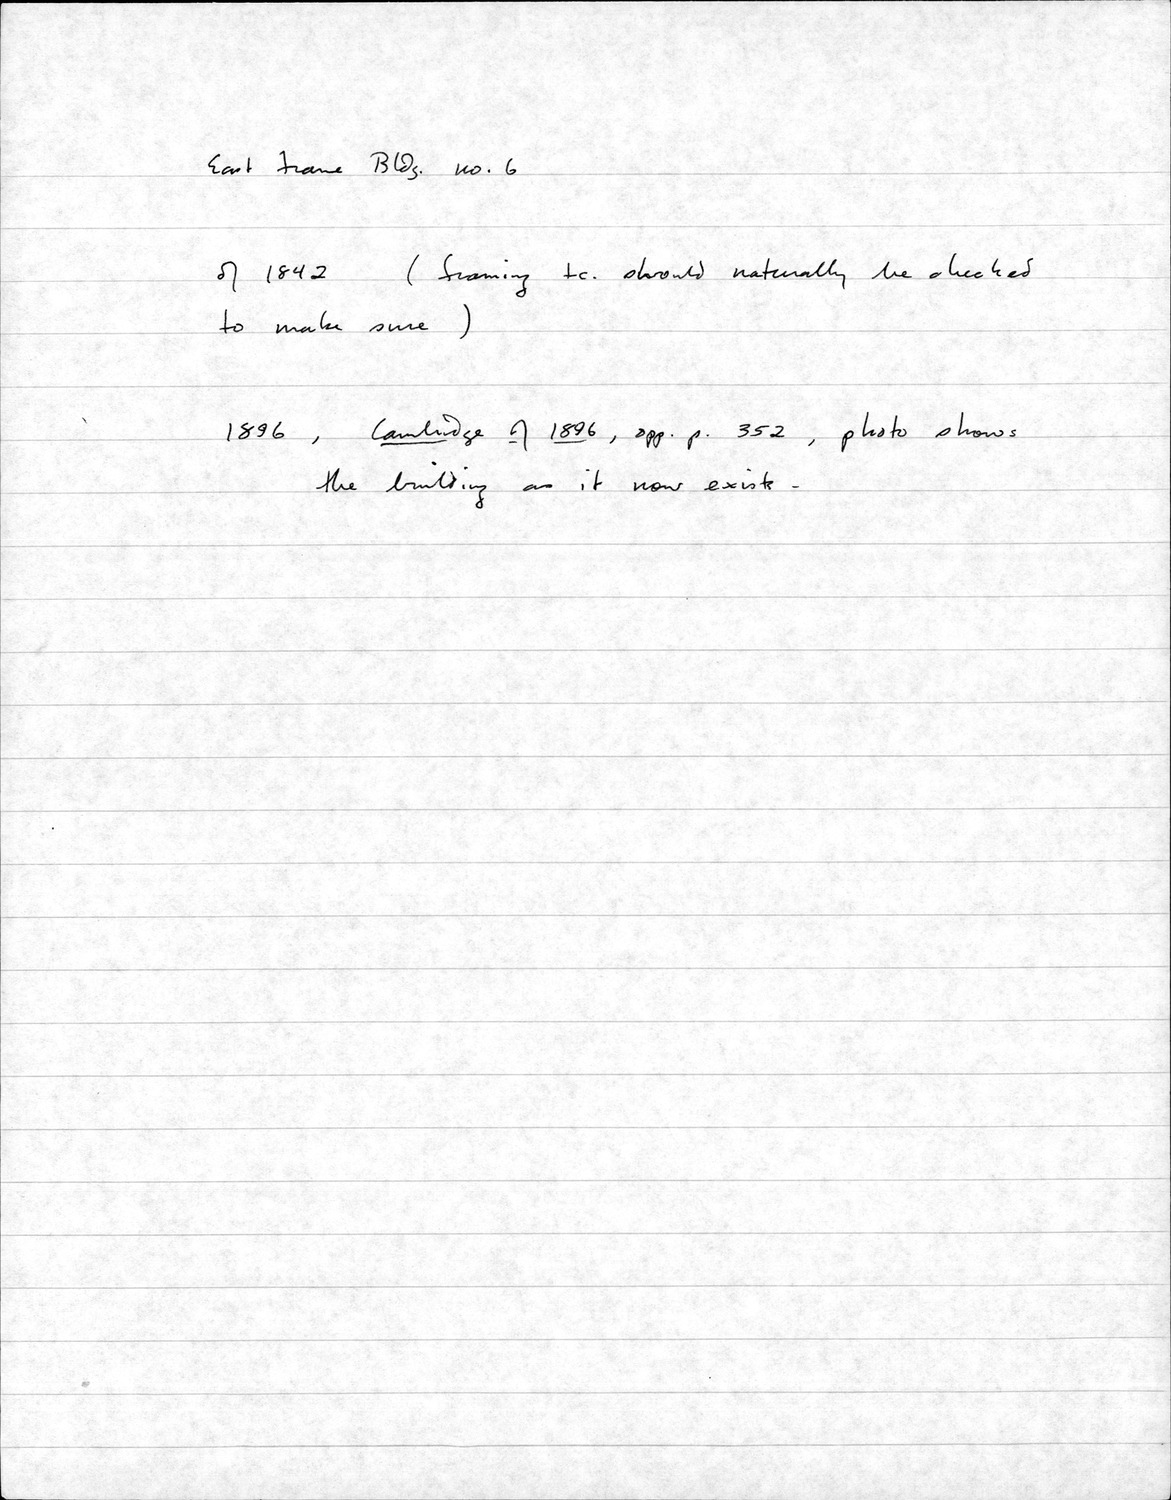 East Frame Bldg. no. 6
of 1842 ( framing &c. should naturally be checked
to make sure )
1896 , Cambridge of 1896, opp. p. 352 , photo shows
the building as it now exists -